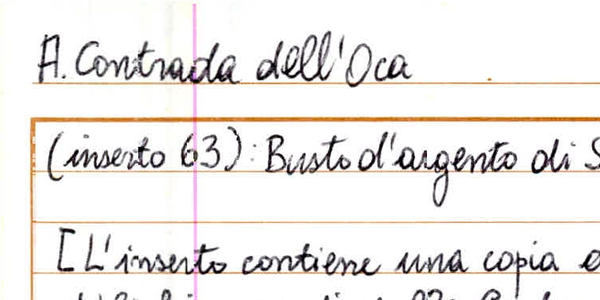 A. Contrada dell'Oca
(inserto 63): Busto d'argento di S
[L'inserto contiene una copia